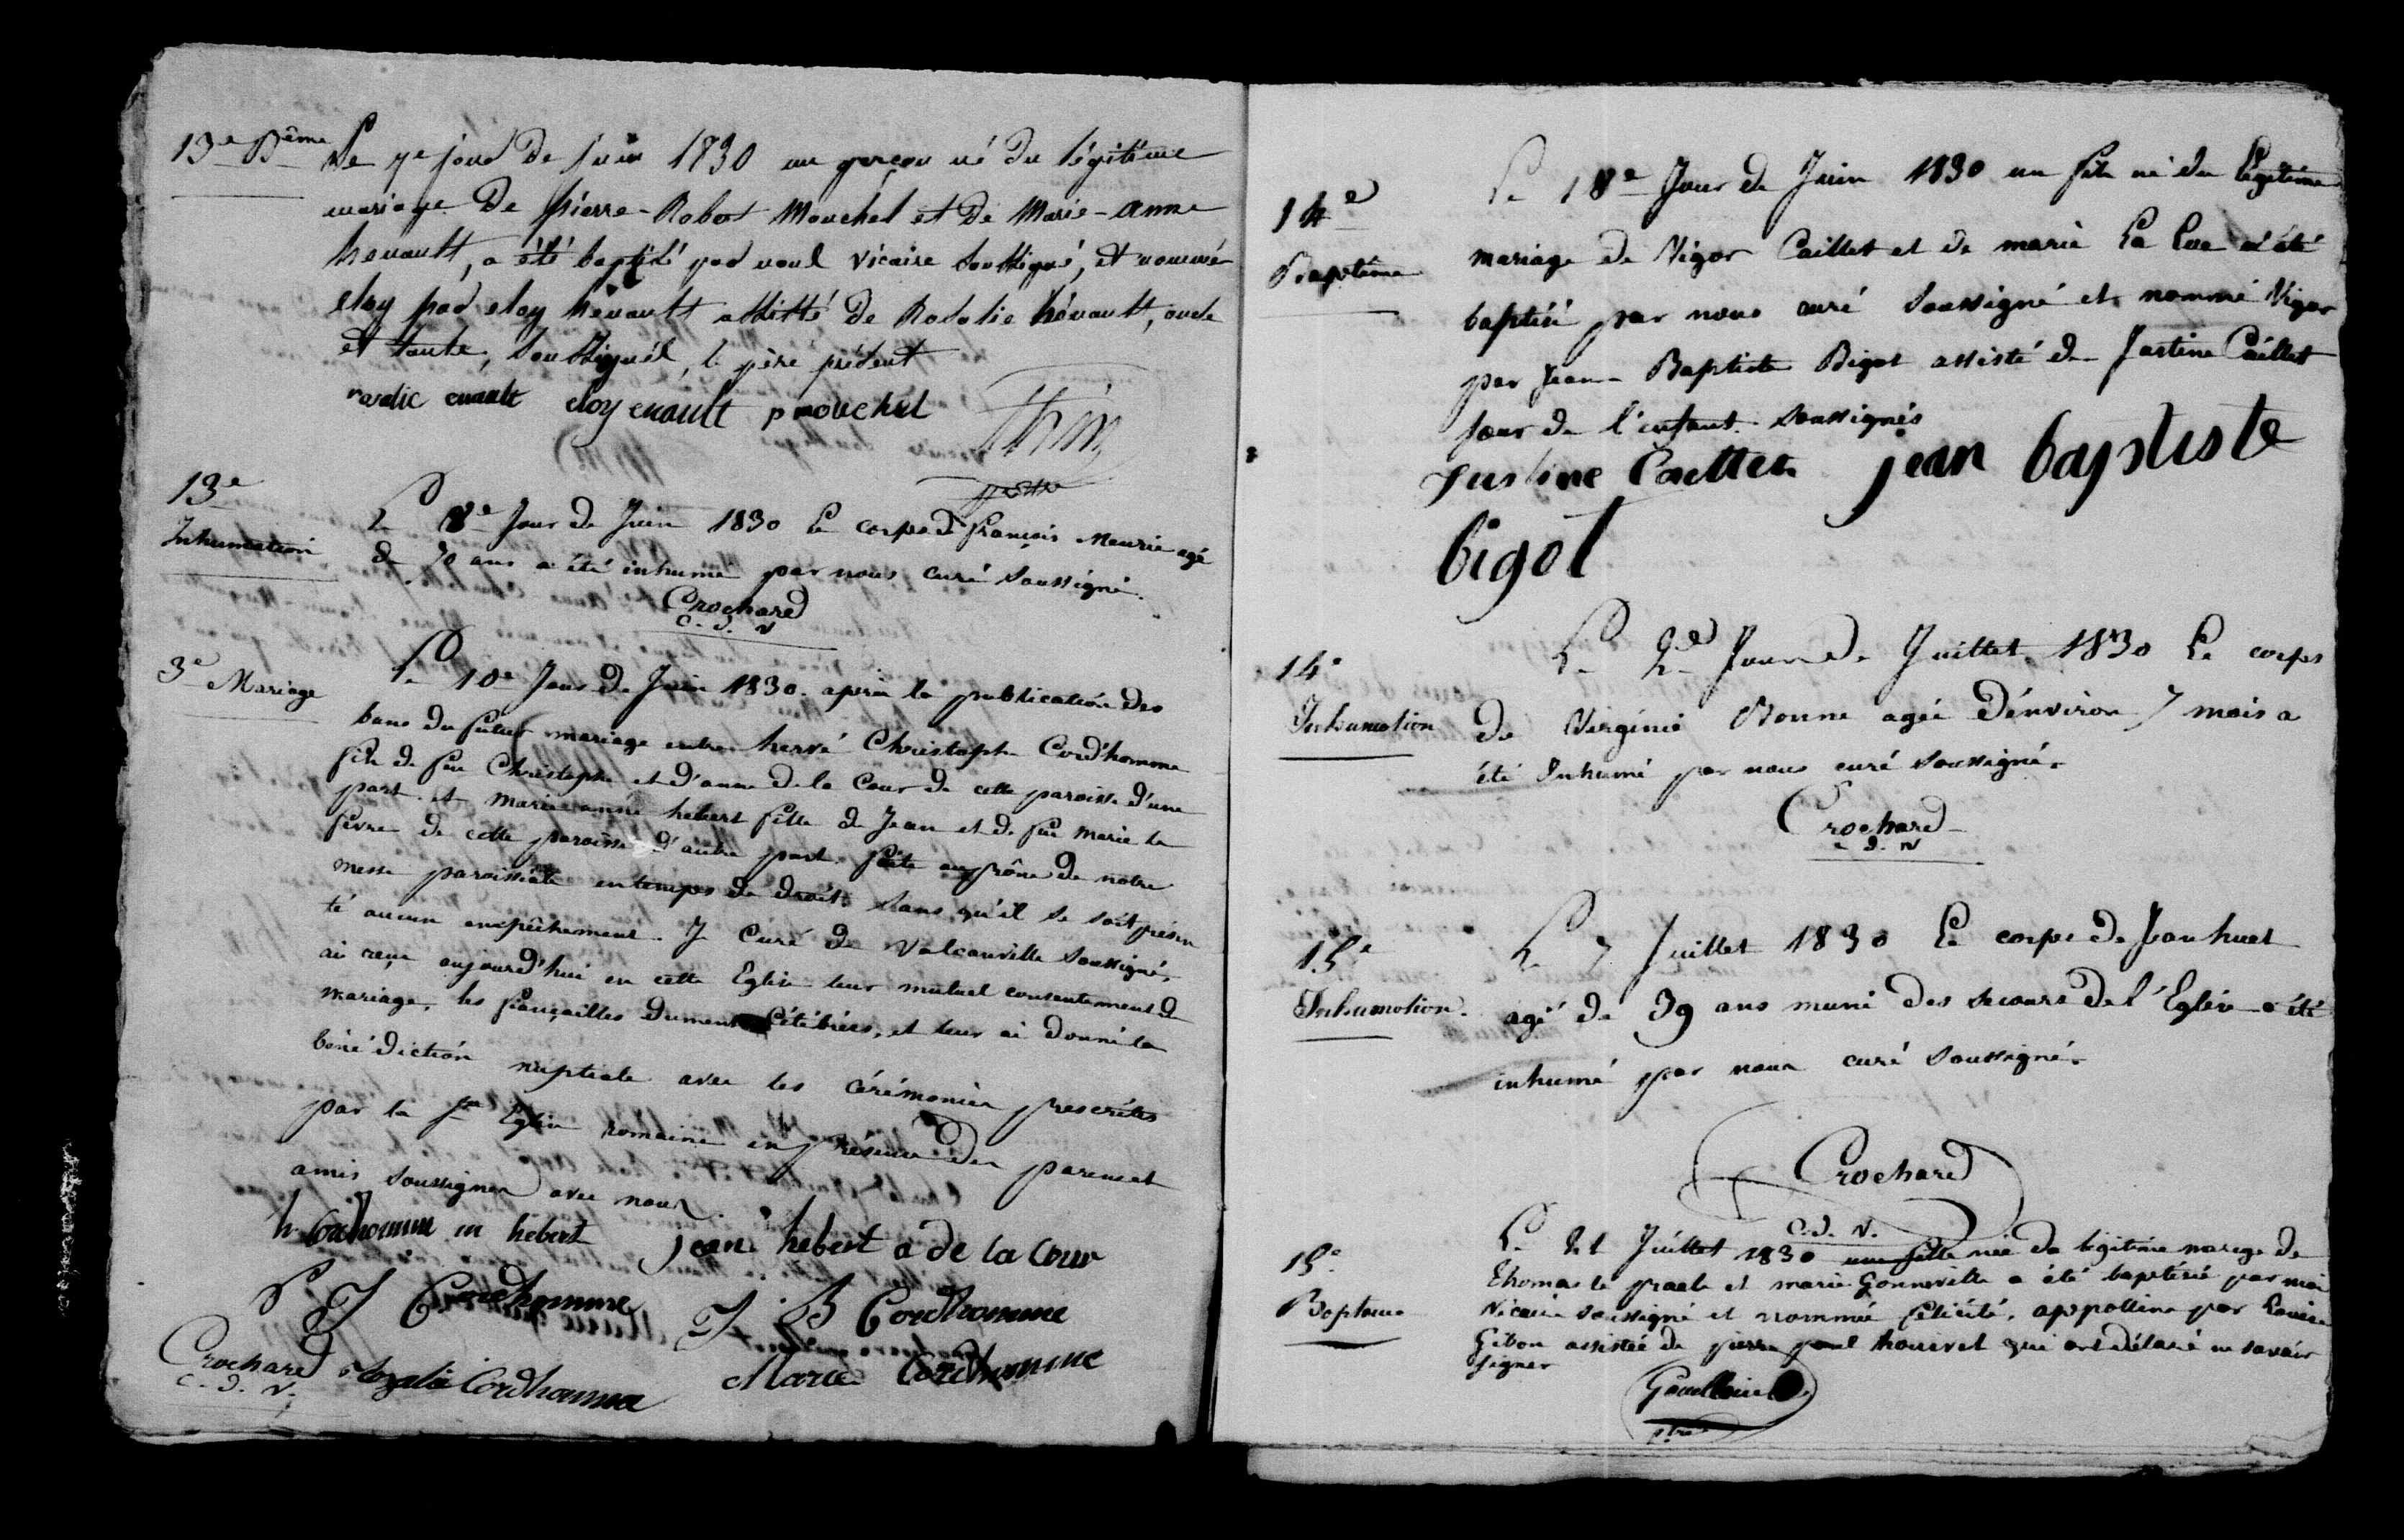 13e Bême
Le 7e jour de Juin 1830 un garçon né du légitime
mariage de pierre-Robert Mouchel et de Marie-anne
hénault, a été baptisé par nous vicaire soussigné, et nommé
eloy par eloy hénault assisté de Rosalie hénault, oncle
et tante, soussignés, le père présent
rosalie enault eloy enault p mouchel
13e
Inhumation
Le 8e Jour de Juin 1830 Le corps de françois Meurie agé
de 70 ans a été inhumé par nous curé soussigné.
Crochard
c. d. v
3e Mariage
Le 10e Jour de Juin 1830. après la publication des
bans du futur mariage entre hervé Christophe Cord'homme
fils de feu Christophe et d'anne de la Cour de cette paroisse d'une
part. et marie anne hebert fille de Jean et de feu marie le
fevre de cette paroisse d'autre part. faite au prône de notre
messe paroissiale en temps de droit. sans qu'il se soit présen
té aucun empêchement. Je Curé de Valcanville soussigné,
ai reçu aujourd'hui en cette Eglise leur mutuel consentement de
mariage, les fiançailles dument célébrées, et leur ai donné la
béné diction nuptiale avec les cérémonies prescrites
par la Ste Eglise romaine en présence des parens et
amis soussignés avec nous.
h Cordhomme m hebert jean hebert a de la Cour
P J Cordhomme J. B Cordhomme
Crochard Cordhomme Marie Cordhomme
c. d. v.
14e
Baptême
Le 18e Jour de Juin 1830 un fils né du légitime
mariage de Vigor Caillet et de marie La Loe a été
baptisé par nous curé soussigné et nommé Vigor
par Jean-Baptiste Bigot assisté de Justine Caillet
soeur de l'enfant soussignés
Justine Caillet jean baptiste
bigot
14e
Inhumation
Le 2e Jour de Juillet 1830 Le corps
de Virginie agée d'environ 7 mois a
été Inhumé par nous curé soussigné.
Crochard
c d. v
15e
Inhumation.
Le 7 Juillet 1830 Le corps de Jean huet
agé de 39 ans muni des secours de l'Eglise a été
inhumé par nous curé soussigné.
Crochard
c. d. v.
15e
Bapteme
Le 21 Juillet 1830 une fille née du légitime mariage de
Thomas le et marie Gonneville a été baptisée par moi
Vicaire soussigné et nommée félicité, appolline par Louise
Gibon assistée de pierre paul qui ont déclaré ne savoir
signer
ptre